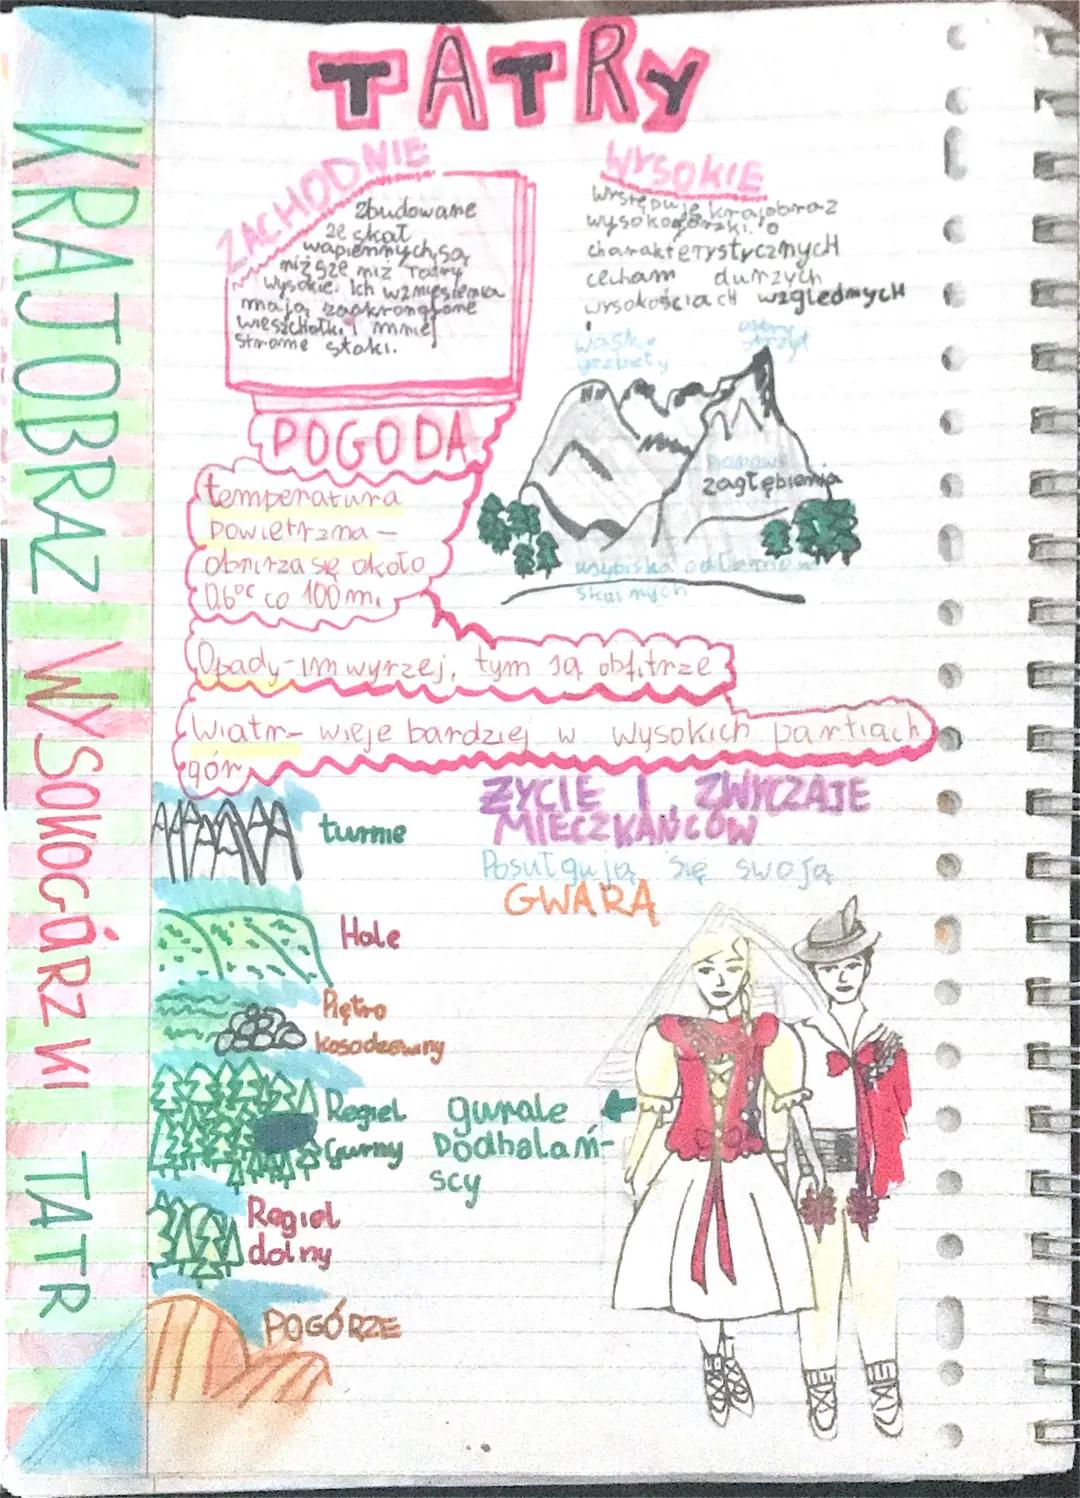 TATRY
KRAJOBRAZ WYSOKOGÓRZKI TATR
ZACHODNIE
zbudowane
ze skał
wapiennych, są
niższe niż Tatry
wysokie. Ich wzniesienia
mają zaokronglone
wieszchołki i mniej
strome stoki.
WYSOKIE
Występuje krajobraz
wysokogórzki. o
charakterystycznych
cecham durzych
wysokościach względnych
wąskie
grzbiety
ostry
szczyt
zagłębienia
skalnych
POGODA
temperatura
powietrzna -
obnirza się około
0,6°C co 100 m.
Opady - im wyrzej, tym są obfitrze
Wiatr - wieje bardziej w wysokich partiach
gór
turnie
Hale
Piętro
kosodzewiny
Regiel
Gurny
Regiel
dolny
POGÓRZE
ŻYCIE I ZWYCZAJE
MIECZKAŃCÓW
Posługują się swoją
GWARĄ
gurale
Podhalań-
scy